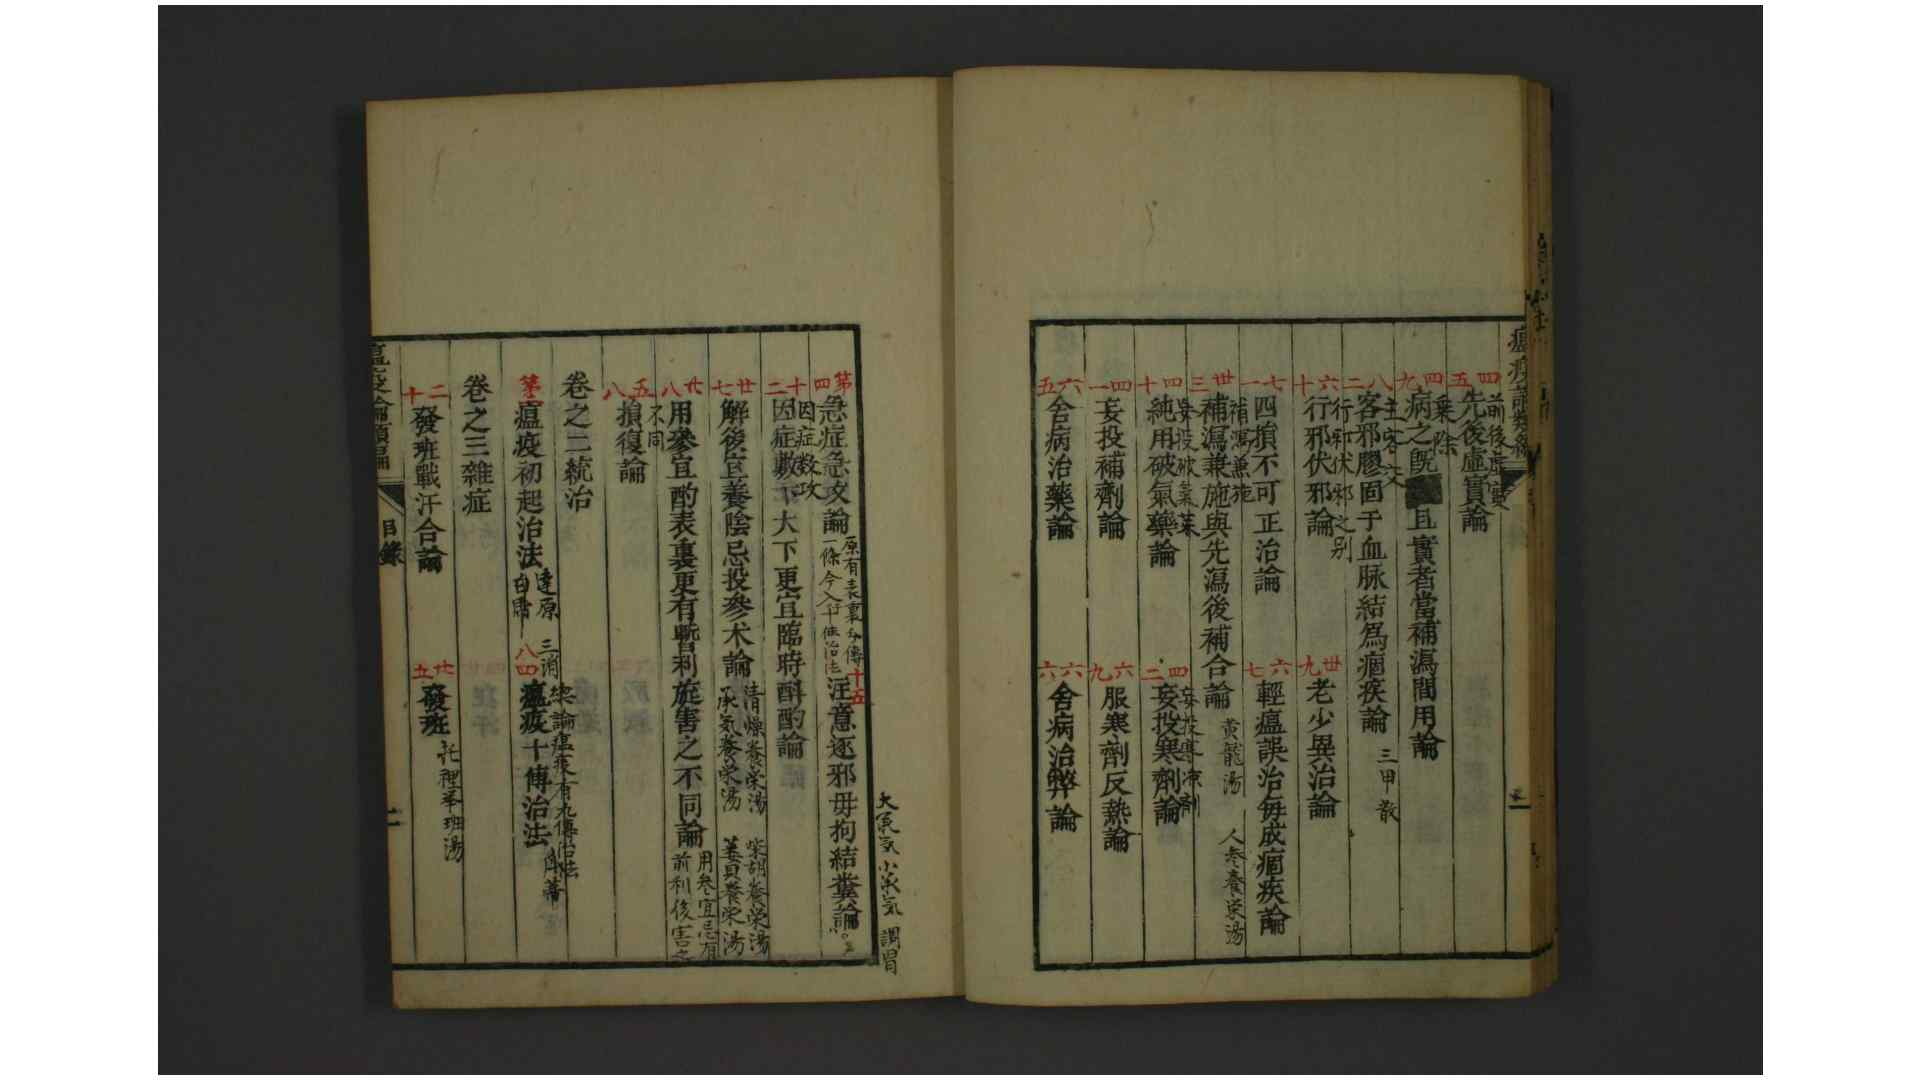 瘟疫論類編
四五
先後虛實論
前後虛實
四九
病之既
且實者當補瀉間用論
乘除
八二
客邪膠固于血脉結爲痼疾論
主客交
三甲散
六十
行邪伏邪論
行邪伏邪之别
卅九
老少異治論
七一
四損不可正治論
六七
輕瘟誤治每成痼疾論
卅三
補瀉兼施與先瀉後補合論
補瀉兼施
黄龍湯
人參養榮湯
四十
純用破氣藥論
妄投破氣藥
四二
妄投寒劑論
妄投寒凉劑
四一
妄投補劑論
六九
服寒劑反熱論
六五
舍病治藥論
六六
舍病治弊論
大承氣 小承氣 調胃
第四
急症急攻論
原有表裏分傳
一條今入
治法
十五
注意逐邪毋拘結糞論
十二
因症數下大下更宜臨時斟酌論
因症数攻
廿七
解後宜養陰忌投參术論
清燥養榮湯
柴胡養榮湯
承氣養榮湯
蔞貝養榮湯
廿八
用參宜酌表裏更有暫利旋害之不同論
用參宜忌有
前利後害之
不同
五八
損復論
卷之二統治
第一
瘟疫初起治法
達原
三消
白虎
八四
瘟疫十傳治法
總論瘟疫有九傳治法
卷之三雜症
二十
發斑戰汗合論
廿五
發斑
托裡舉斑湯
瘟疫論類編
目錄
二